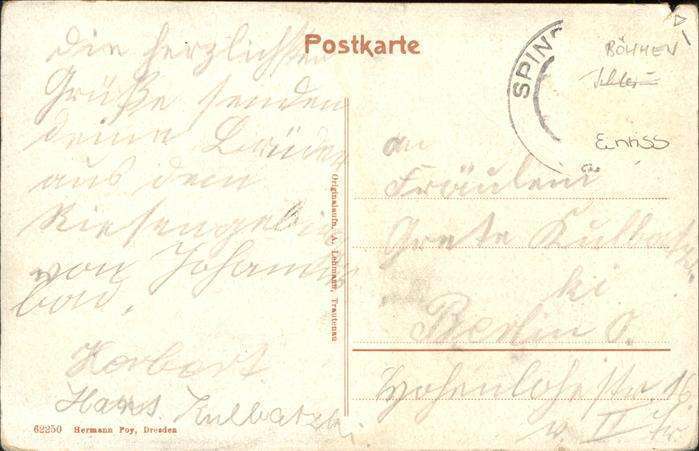 Postkarte
Die herzlichsten
Grüße senden
deine Brüder
aus dem
Riesengebirge
von Johannis
bad,
Herbert
Hans Kulbatzki
62250 Hermann Poy, Dresden
Originalaufn. A. Lehmann, Trautenau
SPIND
BÖHMEN
Einriss
an
Fräulein
Grete Kulbatz
ki
Berlin O.
Hohenlohestr.
v. II Tr.